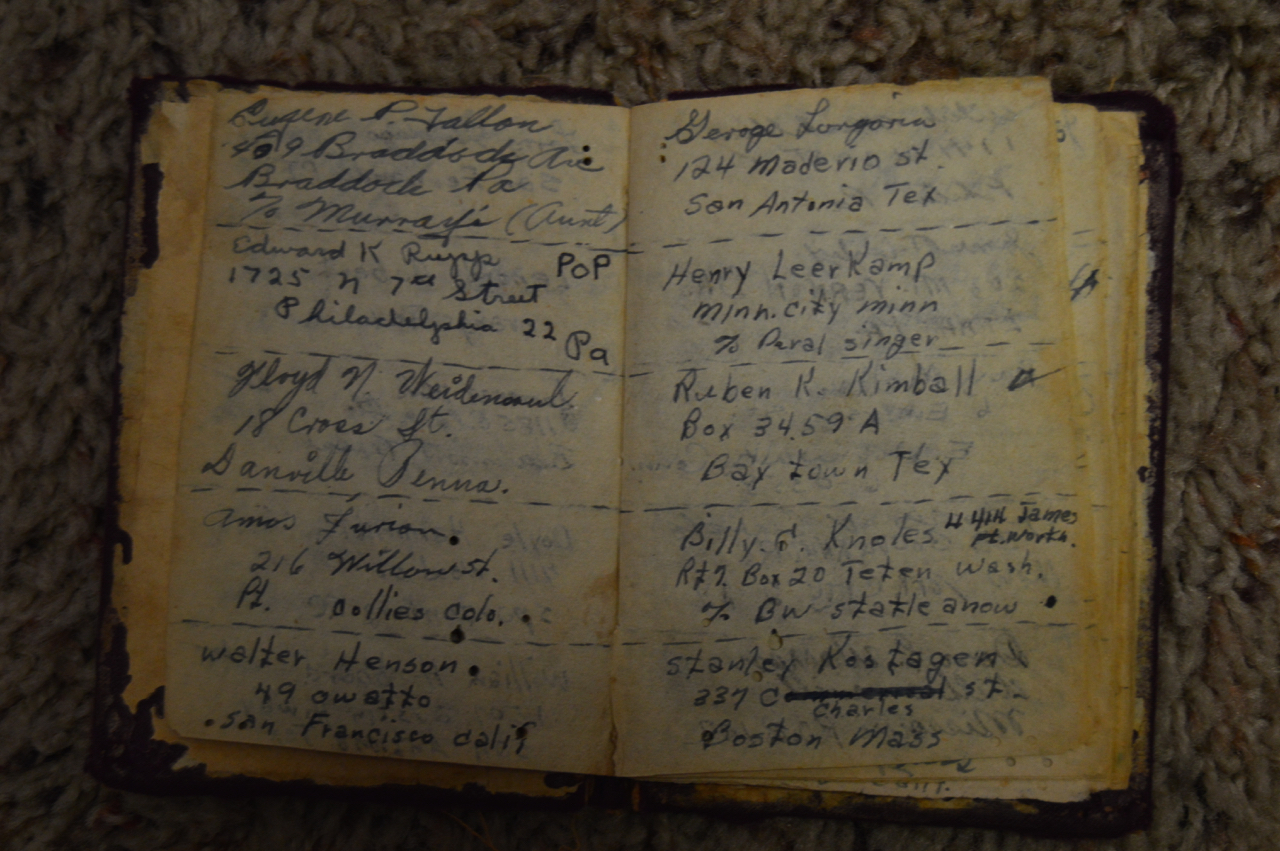 Eugene P. Fallon
409 Braddock Ave
Braddock Pa
% Murray's (Aunt)
Edward K Rupp
POP
1725 N 7th Street
Philadelphia 22
Pa
Floyd N.
18 Cross St.
Danville Penna.
Amos Furion.
216 Willow st.
Ft. Collies colo.
walter Henson.
49 owatto
San Francisco calif
Geroge Longoria
124 Maderio st.
San Antonia Tex
Henry Leerkamp
Minn. city minn
% Peral singer
Ruben K. Kimball
Box 3459 A
Bay town Tex
Billy. F. Knoles
44th James
Ft. Worth.
Rt 7. Box 20 Teten wash.
% BW statle anow
Stanley Kostagen
337 st.
Charles
Boston Mass